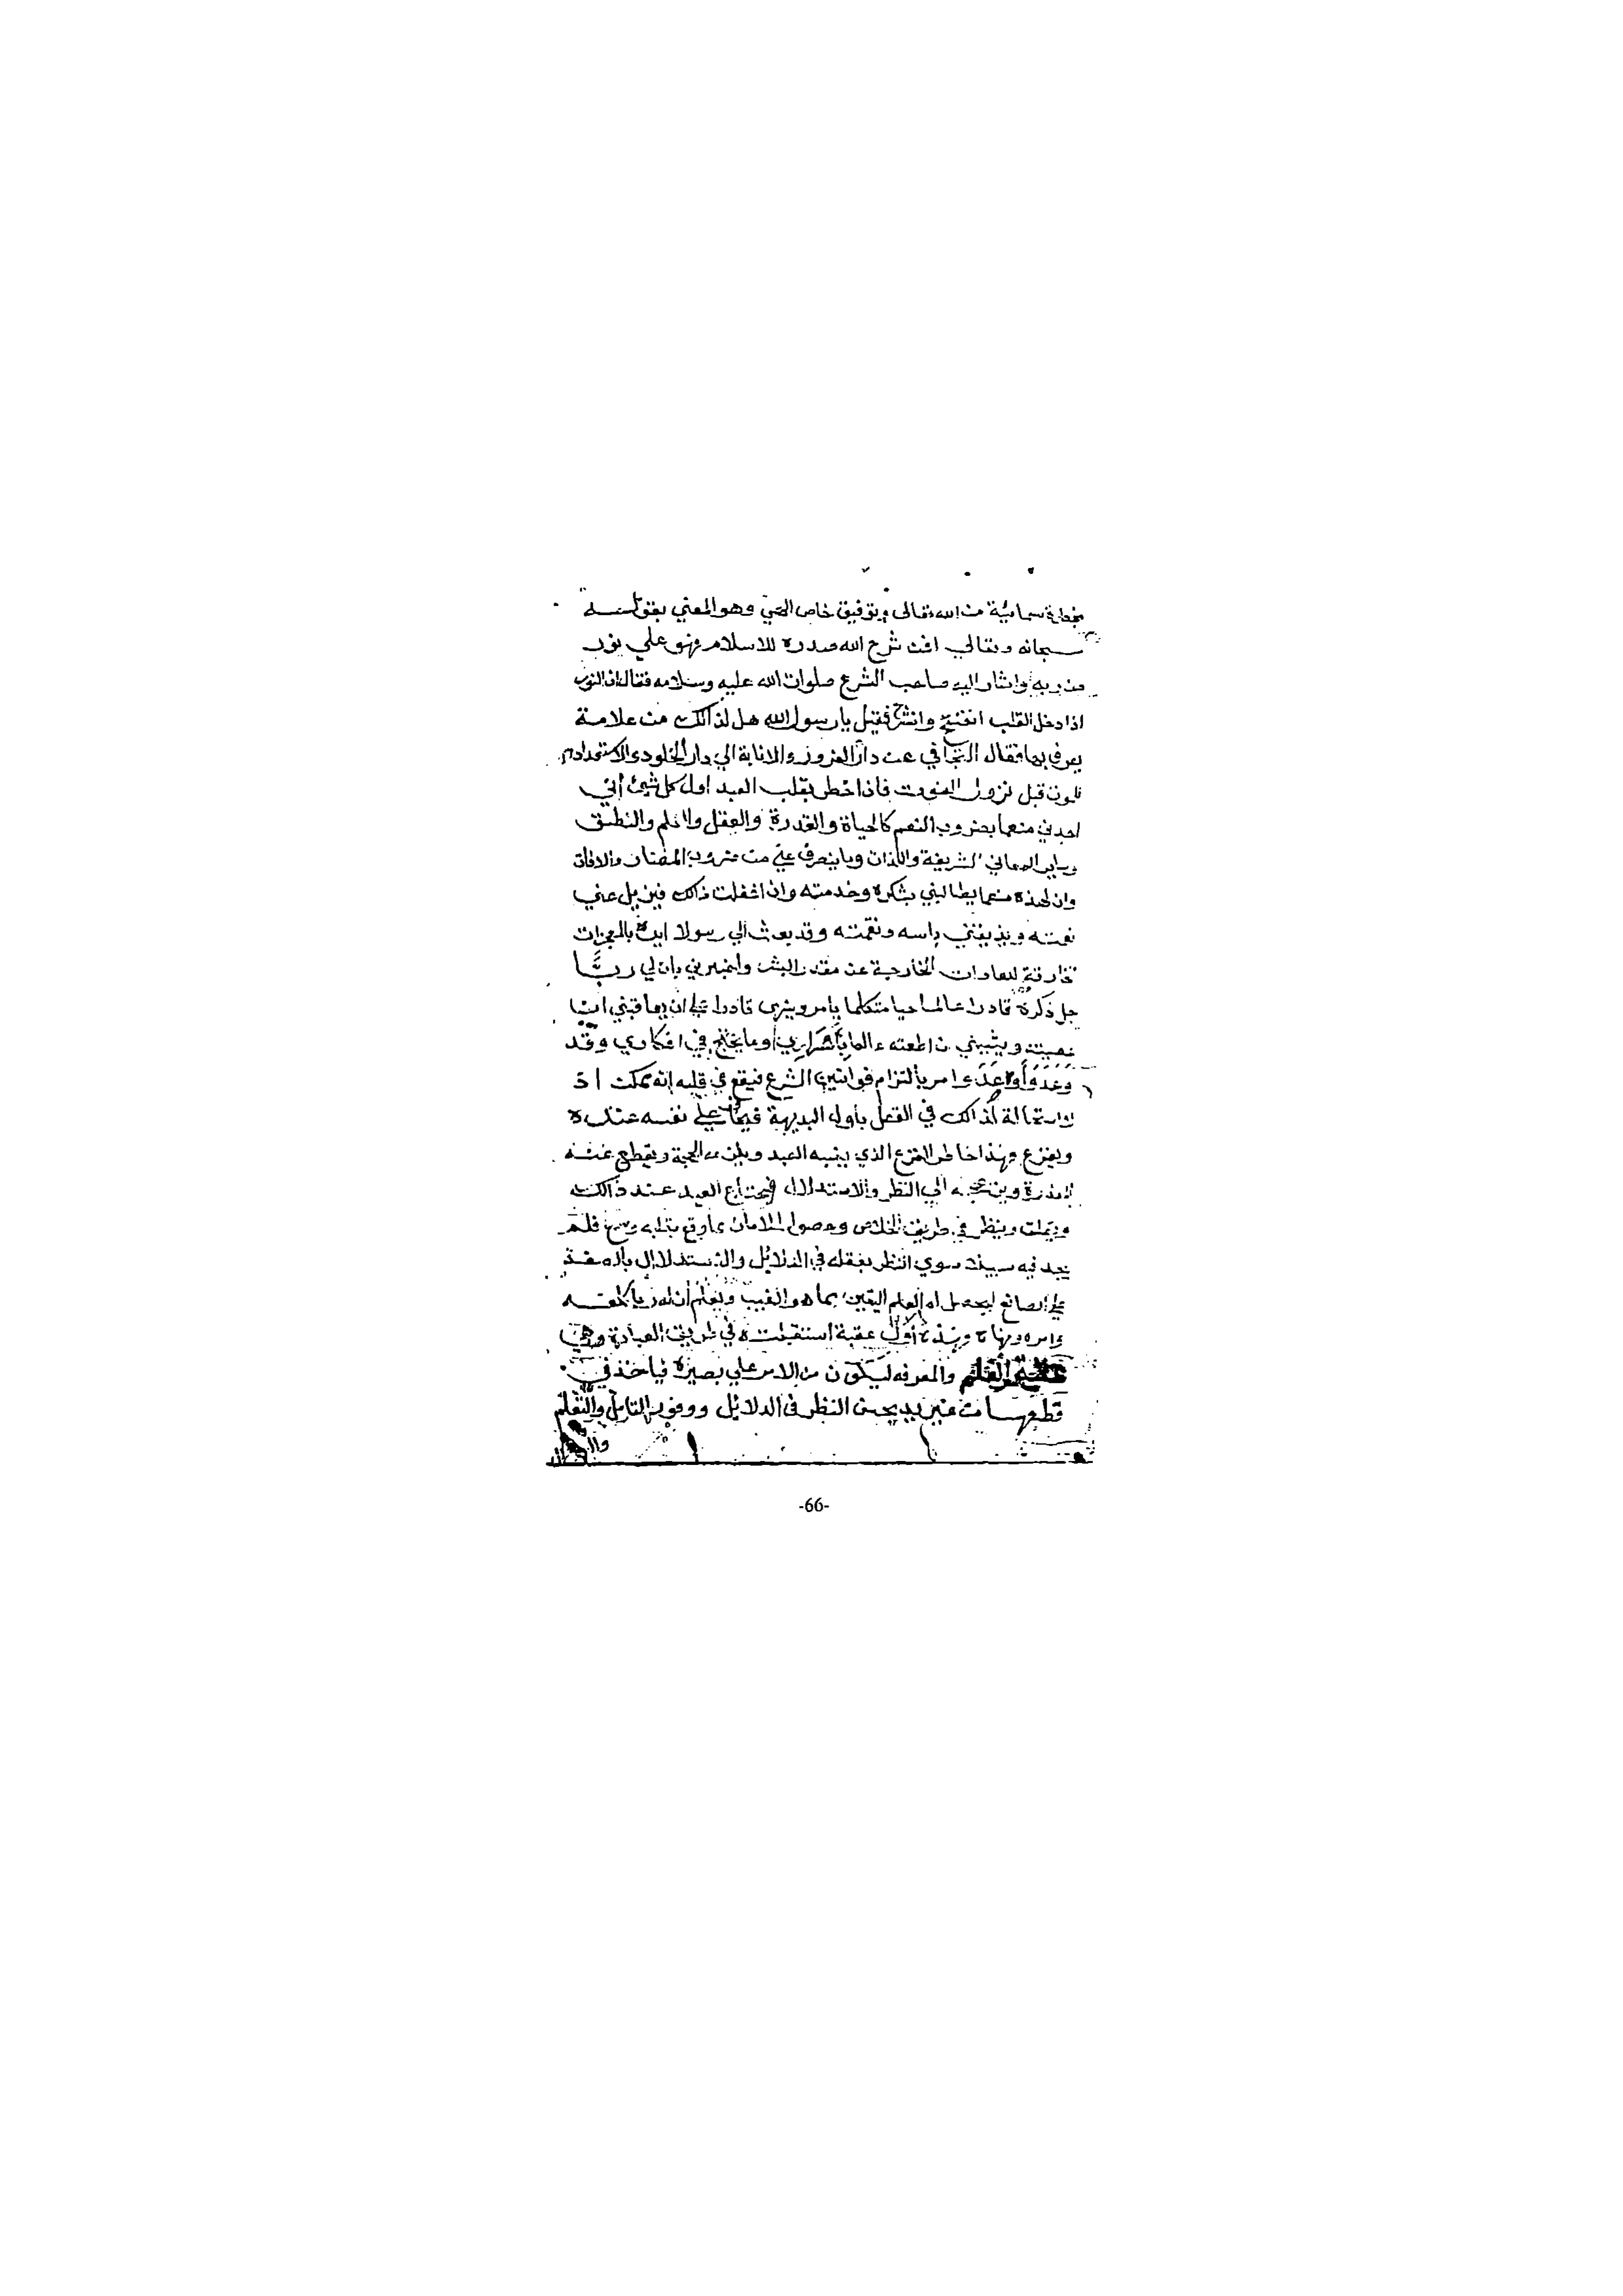 بخطرة سماوية من الله تعالى وتوفيق خاص الهي وهو المعني بقوله
سبحانه وتعالي افمن شرح الله صدره للاسلام فهو علي نور
من ربه واشار اليه صاحب الشرع صلوات الله عليه وسلامه فقال ان النور
اذا دخل القلب انفتح وانشرح فقيل يا رسول الله هل لذالك من علامة
يعرف بها فقال التجافي عن دار الغرور والانابة الي دار الخلود والاستعداد
للموت قبل نزول الموت فاذا خطر بقلب العبد اول كل شيئ أني
اجدني منعما بضروب النعم كالحياة والقدرة والعقل والعلم والنطق
وساير المعاني الشريفة واللذات وما ينصرف عني من ضروب المضار والافات
وان لهذه منعما يطالبني بشكره وخدمته وان اغفلت ذالك فيزيل عني
نعمته ويذيقني باسه ونقمته وقد بعث الي رسولا بالمعجزات
الخارقة للعادات الخارجة عن مقدور البشر واخبرني بان لي ربا
جل ذكره قادرا عالما حيا متكلما يامر وينهى قادرا علي ان يعاقبني ان
عصيته ويثيبني ان اطعته عالما بأسراري وما يختلج في افكاري وقد
وعد وأوعد وامر بالتزام قوانين الشرع فيقع في قلبه انه ممكن اذ
لا استحالة لذالك في العقل بأول البديهة فيخاف علي نفسه عنده
ويفزع وهذا خاطر الفزع الذي ينبه العبد ويلزمه الحجة ويقطع عنه
المعذرة ويزعجه الي النظر والاستدلال فيحتاج العبد عند ذالك
وينظر في طريق الخلاص وحصول الامان بما وقع بقلبه فلم
يجد فيه سبيلا سوي النظر بعقله في الدلايل والاستدلال بالصنعة
علي الصانع ليحصل له العلم اليقين بما هو الغيب ويعلم ان له ربا كلفه
وامره ونهاه وهذه أول عقبة استقبلته في طريق العبادة وهي
عقبة العلم والمعرفه ليكون من الامر علي بصيرة فياخذ في
قطعها من غير بد يحسن النظر في الدلايل ووفور التامل والتعلم
-66-